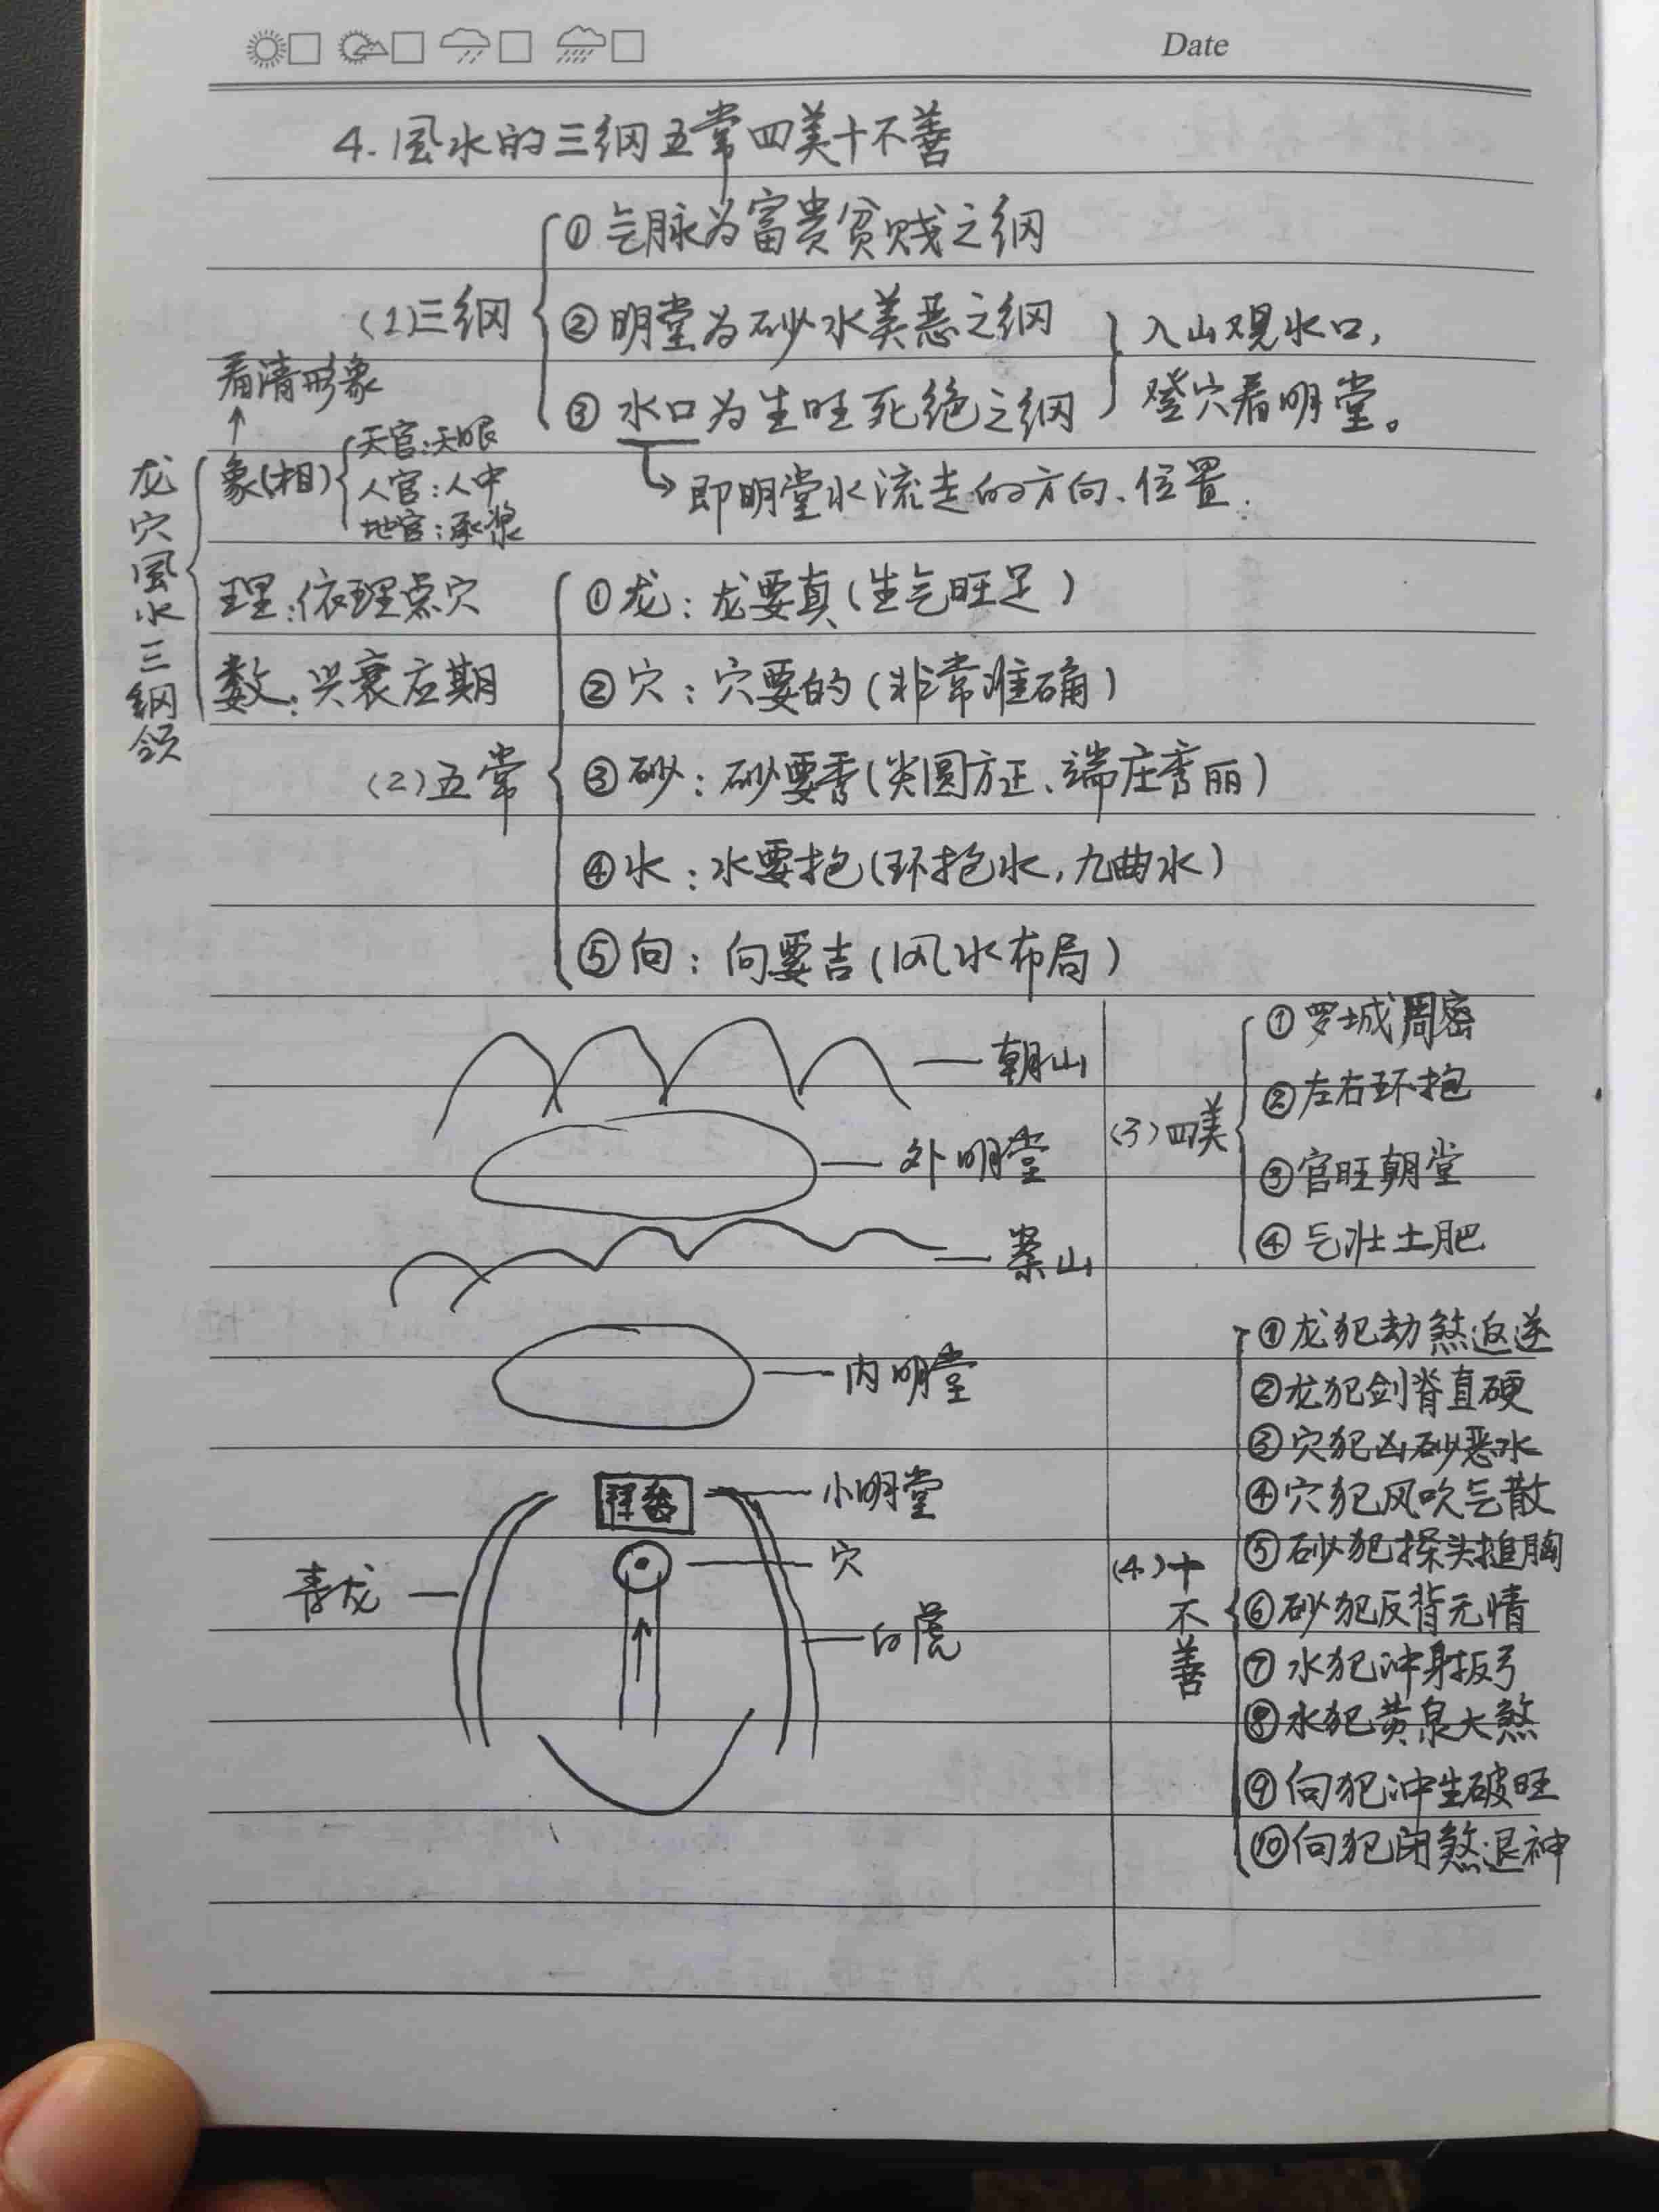 Date
4.風水的三纲五常四美十不善
(1)三纲
①气脉为富贵贫贱之纲
②明堂为砂水美恶之纲
③水口为生旺死绝之纲
入山观水口,
登穴看明堂。
即明堂水流走的方向、位置.
龙穴風水三纲领
看清形象
象(相)
天宫:天眼
人宫:人中
地宫:承浆
理:依理点穴
数:兴衰应期
(2)五常
①龙:龙要真(生气旺足)
②穴:穴要的(非常准确)
③砂:砂要秀(尖圆方正、端庄秀丽)
④水:水要抱(环抱水,九曲水)
⑤向:向要吉(风水布局)
朝山
外明堂
案山
内明堂
拜台
小明堂
穴
青龙
白虎
(3)四美
①罗城周密
②左右环抱
③官旺朝堂
④气壮土肥
(4)十不善
①龙犯劫煞返逆
②龙犯剑脊直硬
③穴犯凶砂恶水
④穴犯风吹气散
⑤砂犯探头搥胸
⑥砂犯反背无情
⑦水犯冲身扳弓
⑧水犯黄泉大煞
⑨向犯冲生破旺
⑩向犯闭煞退神